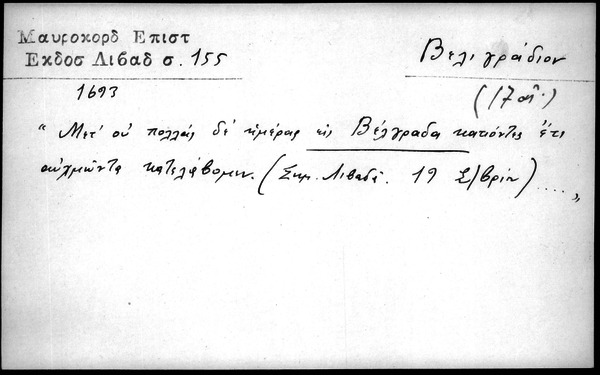 Μαυροκορδ Επιστ
Εκδοσ Λιβαδ σ. 155
Βελιγράδιον
1693
(17 αἰ.)
“ Μετ' οὐ πολλὰς δὲ ἡμέρας εἰς Βέλγραδα κατιόντες ἔτι
αὐχμῶντα κατελάβομεν. (Σημ. Λιβαδᾶ. 19 Σ/βρίου) .... „